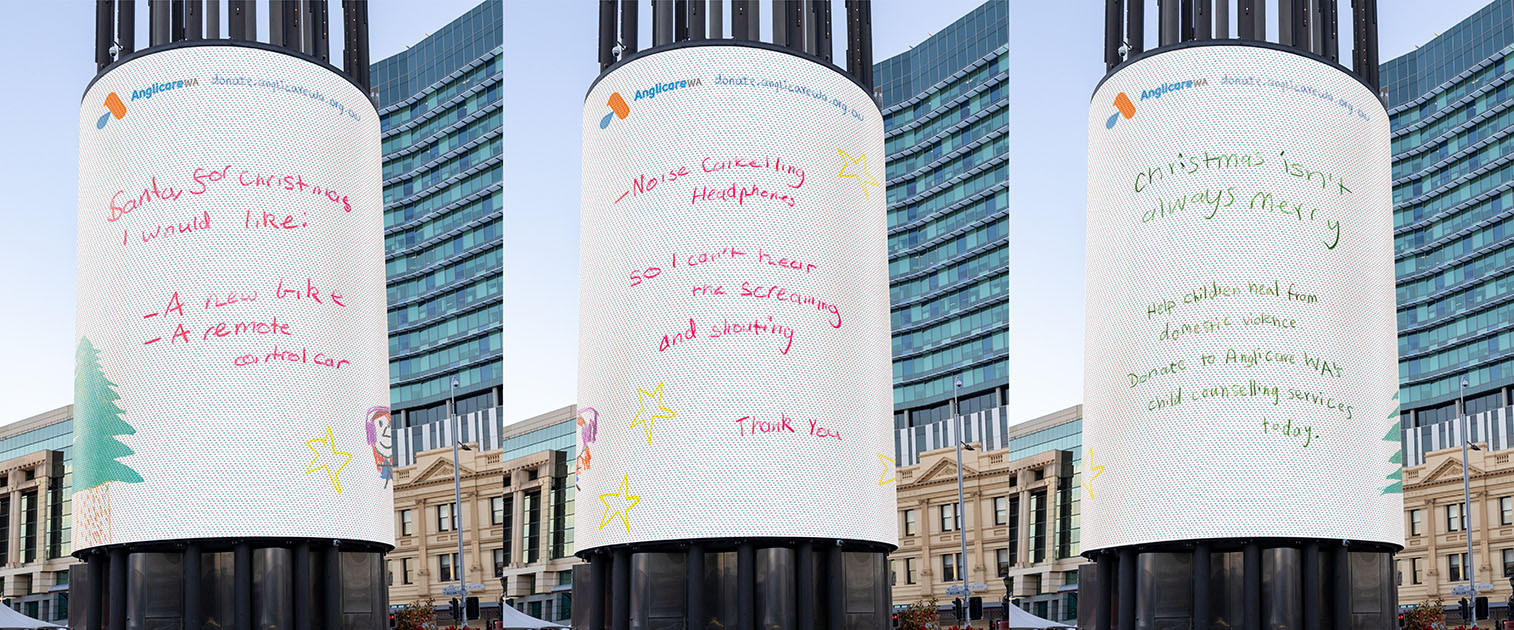 AnglicareWA donate.anglicarewa.org.au
Santa, for christmas
I would like:
- A new bike
- A remote
control car
AnglicareWA donate.anglicarewa.org.au
- Noise Cancelling
Headphones
so I can't hear
the screaming
and shouting
Thank You
AnglicareWA donate.anglicarewa.org.au
Christmas isn't
always merry
Help children heal from
domestic violence
Donate to Anglicare WA's
child counselling services
today.